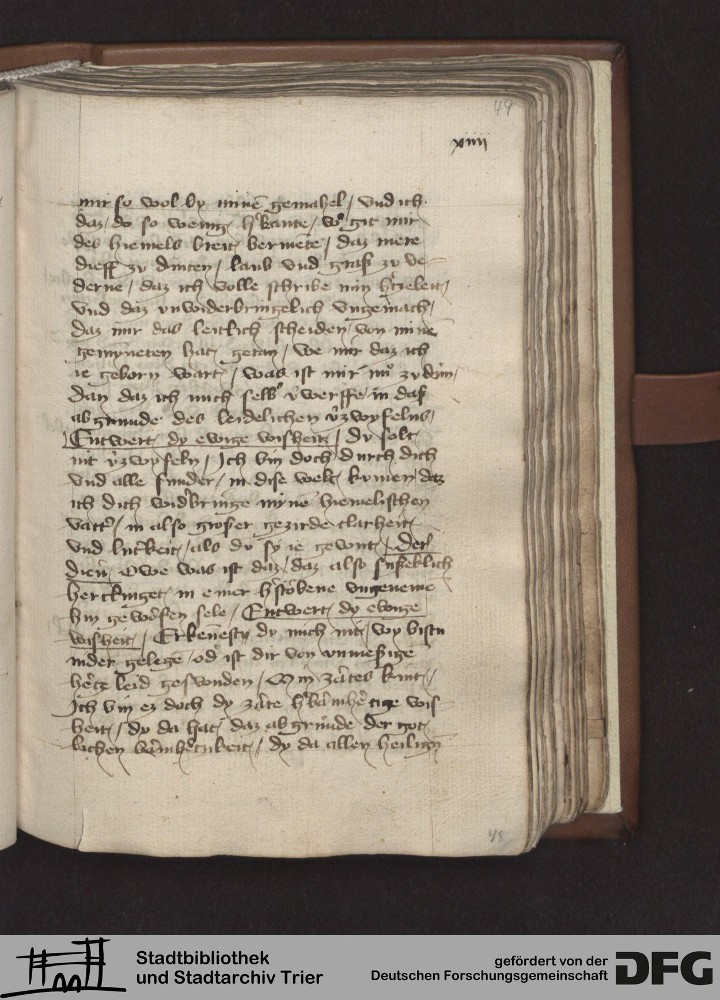 49
xiiii
mir so wol by minē gemahel / vnd ich
daz do so wenig / we git mir
des hiemels breit bermete / daz mere
dieff zu dinten / laub vnd graß zu ve=
derne / daz ich volle schribe min h'tzeleit /
vnd daz vnwiderbringelich vngemach /
daz mir das leitlich scheiden von minē
gemynneten hat getan / we mir daz ich
ie geborn wart / was ist mir nu zu dün /
dan daz ich mich selb' v'werffe in daß
abgrunde des leidelichen v'zwyfelns /
Entwert dy ewige wisheit / dv salt
nit v'zwyfeln / Ich bin doch durch dich
vnd alle sunder / in dise welt kumen / daz
ich dich wid'bringe mynē hiemelischen
vatt' / in also großer gezirde clarheit
vnd lut'keit / als dv sy ie gewont / Der
dien' Owe was ist daz / daz also sußeklich
herclinget in einer h'störbene vngeneme
hin geworfen sele / Entwert dy ewige
wisheit / Erkenesty dv mich nit / wy bistu
nider gelegē / od' ist dir von vnmeßige
h'tz leid geswonden / Min zartes kint /
Ich bin ez doch dy zarte barmh'tige wis
heit / dy da hat daz abgrunde der got
lichen barmh'tzikeit / dy da allen heiligen
48
Stadtbibliothek
und Stadtarchiv Trier
gefördert von der
Deutschen Forschungsgemeinschaft
DFG